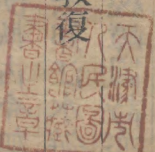 復
天津市
人民圖
書館藏
書之章